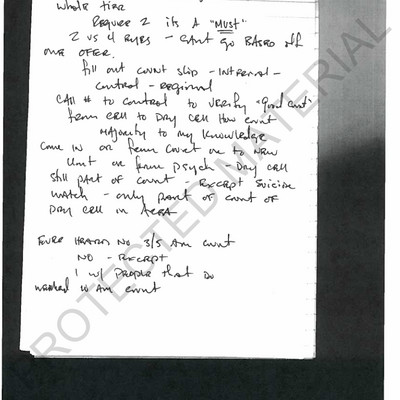 whole tier
Require 2 its A "MUST"
2 vs 4 eyes - can't go BASED off
one offer.
fill out count slip - Internal -
control - Regional
CAll # to control to verify "good count"
from cell to Dry cell How count
majority to my knowledge
come in or from court or to new
unit or from psych - Dry cell
still part of count - Except suicide
watch - only part of count of
Dry cell in AREA
HEARD NO 3/5 Am count
NO - Except
1 w/ people that do
worked 10 Am count
PROTECTED MATERIAL